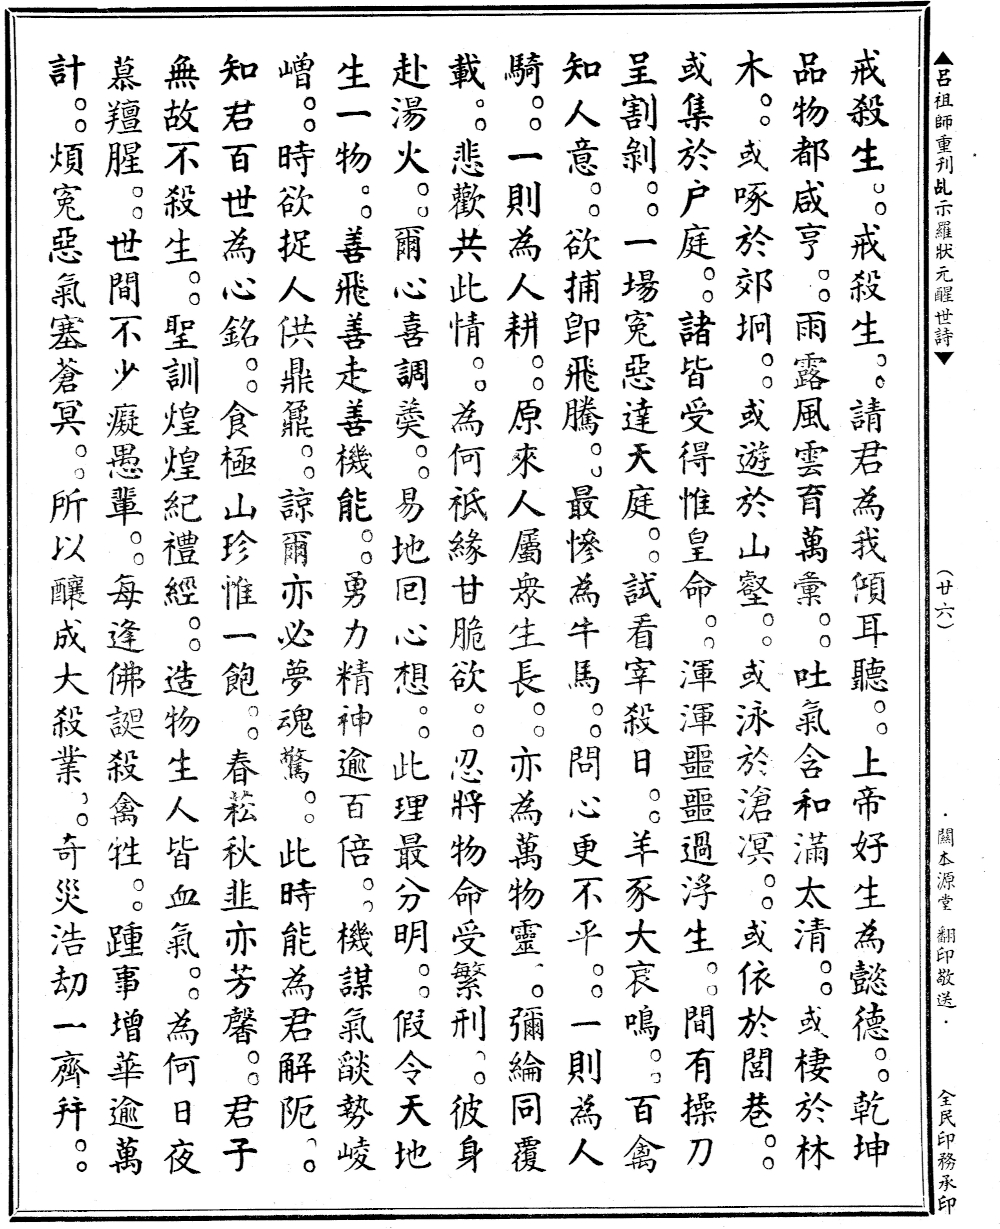 ▲呂祖師重刊乩示羅狀元醒世詩▼
（廿六）
·關本源堂 翻印敬送·
全民印務承印
戒殺生。。戒殺生。。請君為我傾耳聽。。上帝好生為懿德。。乾坤
品物都咸亨。。雨露風雲育萬彙。。吐氣含和滿太清。。或棲於林
木。。或啄於郊坰。。或遊於山壑。。或泳於滄溟。。或依於閭巷。。
或集於户庭。。諸皆受得惟皇命。。渾渾噩噩過浮生。。間有操刀
呈割剝。。一場冤惡達天庭。。試看宰殺日。。羊豕大哀鳴。。百禽
知人意。。欲捕卽飛騰。。最慘為牛馬。。問心更不平。。一則為人
騎。。一則為人耕。。原來人屬衆生長。。亦為萬物靈。。彌綸同覆
載。。悲歡共此情。。為何祇緣甘脆欲。。忍將物命受繁刑。。彼身
赴湯火。。爾心喜調羹。。易地回心想。。此理最分明。。假令天地
生一物。。善飛善走善機能。。勇力精神逾百倍。。機謀氣燄勢崚
嶒。。時欲捉人供鼎鼐。。諒爾亦必夢魂驚。。此時能為君解阨。。
知君百世為心銘。。食極山珍惟一飽。。春菘秋韭亦芳馨。。君子
無故不殺生。。聖訓煌煌紀禮經。。造物生人皆血氣。。為何日夜
慕羶腥。。世間不少癡愚輩。。每逢佛誕殺禽牲。。踵事增華逾萬
計。。煩冤惡氣塞蒼冥。。所以釀成大殺業。。奇災浩劫一齊幷。。